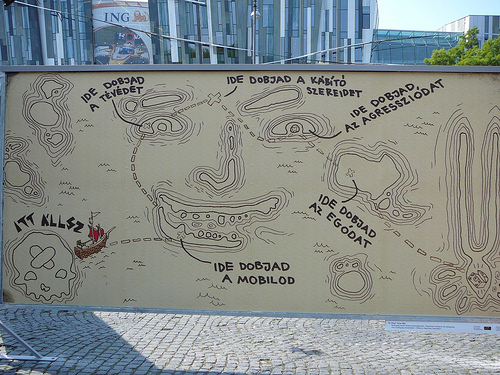 ING
IDE DOBJAD
A TÉVÉDET
IDE DOBJAD A KÁBÍTÓ
SZEREIDET
IDE DOBJAD
AZ AGRESSZIÓDAT
ITT ÁLLSZ
IDE DOBJAD
AZ EGÓDAT
IDE DOBJAD
A MOBILOD